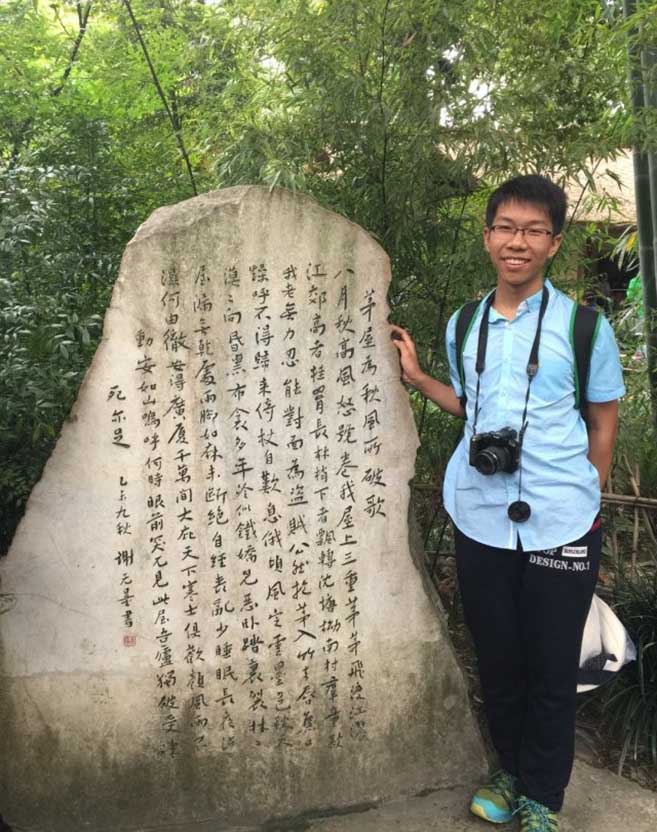 茅屋為秋風所破歌
八月秋高風怒號卷我屋上三重茅茅飛渡江灑
江郊高者挂罥長林梢下者飄轉沈塘坳南村羣童欺
我老無力忍能對面為盜賊公然抱茅入竹去唇焦口
燥呼不得歸來倚杖自歎息俄頃風定雲墨色秋天
漠〻向昏黑布衾多年冷似鐵嬌兒惡卧踏裏裂牀〻
屋漏無乾處雨脚如麻未斷絕自經喪亂少睡眠長夜沾
濕何由徹安得廣厦千萬間大庇天下寒士俱歡顏風雨不
動安如山嗚呼何時眼前突兀見此屋吾廬獨破受凍
死亦足
乙未九秋 謝无量書
DESIGN-NO.1